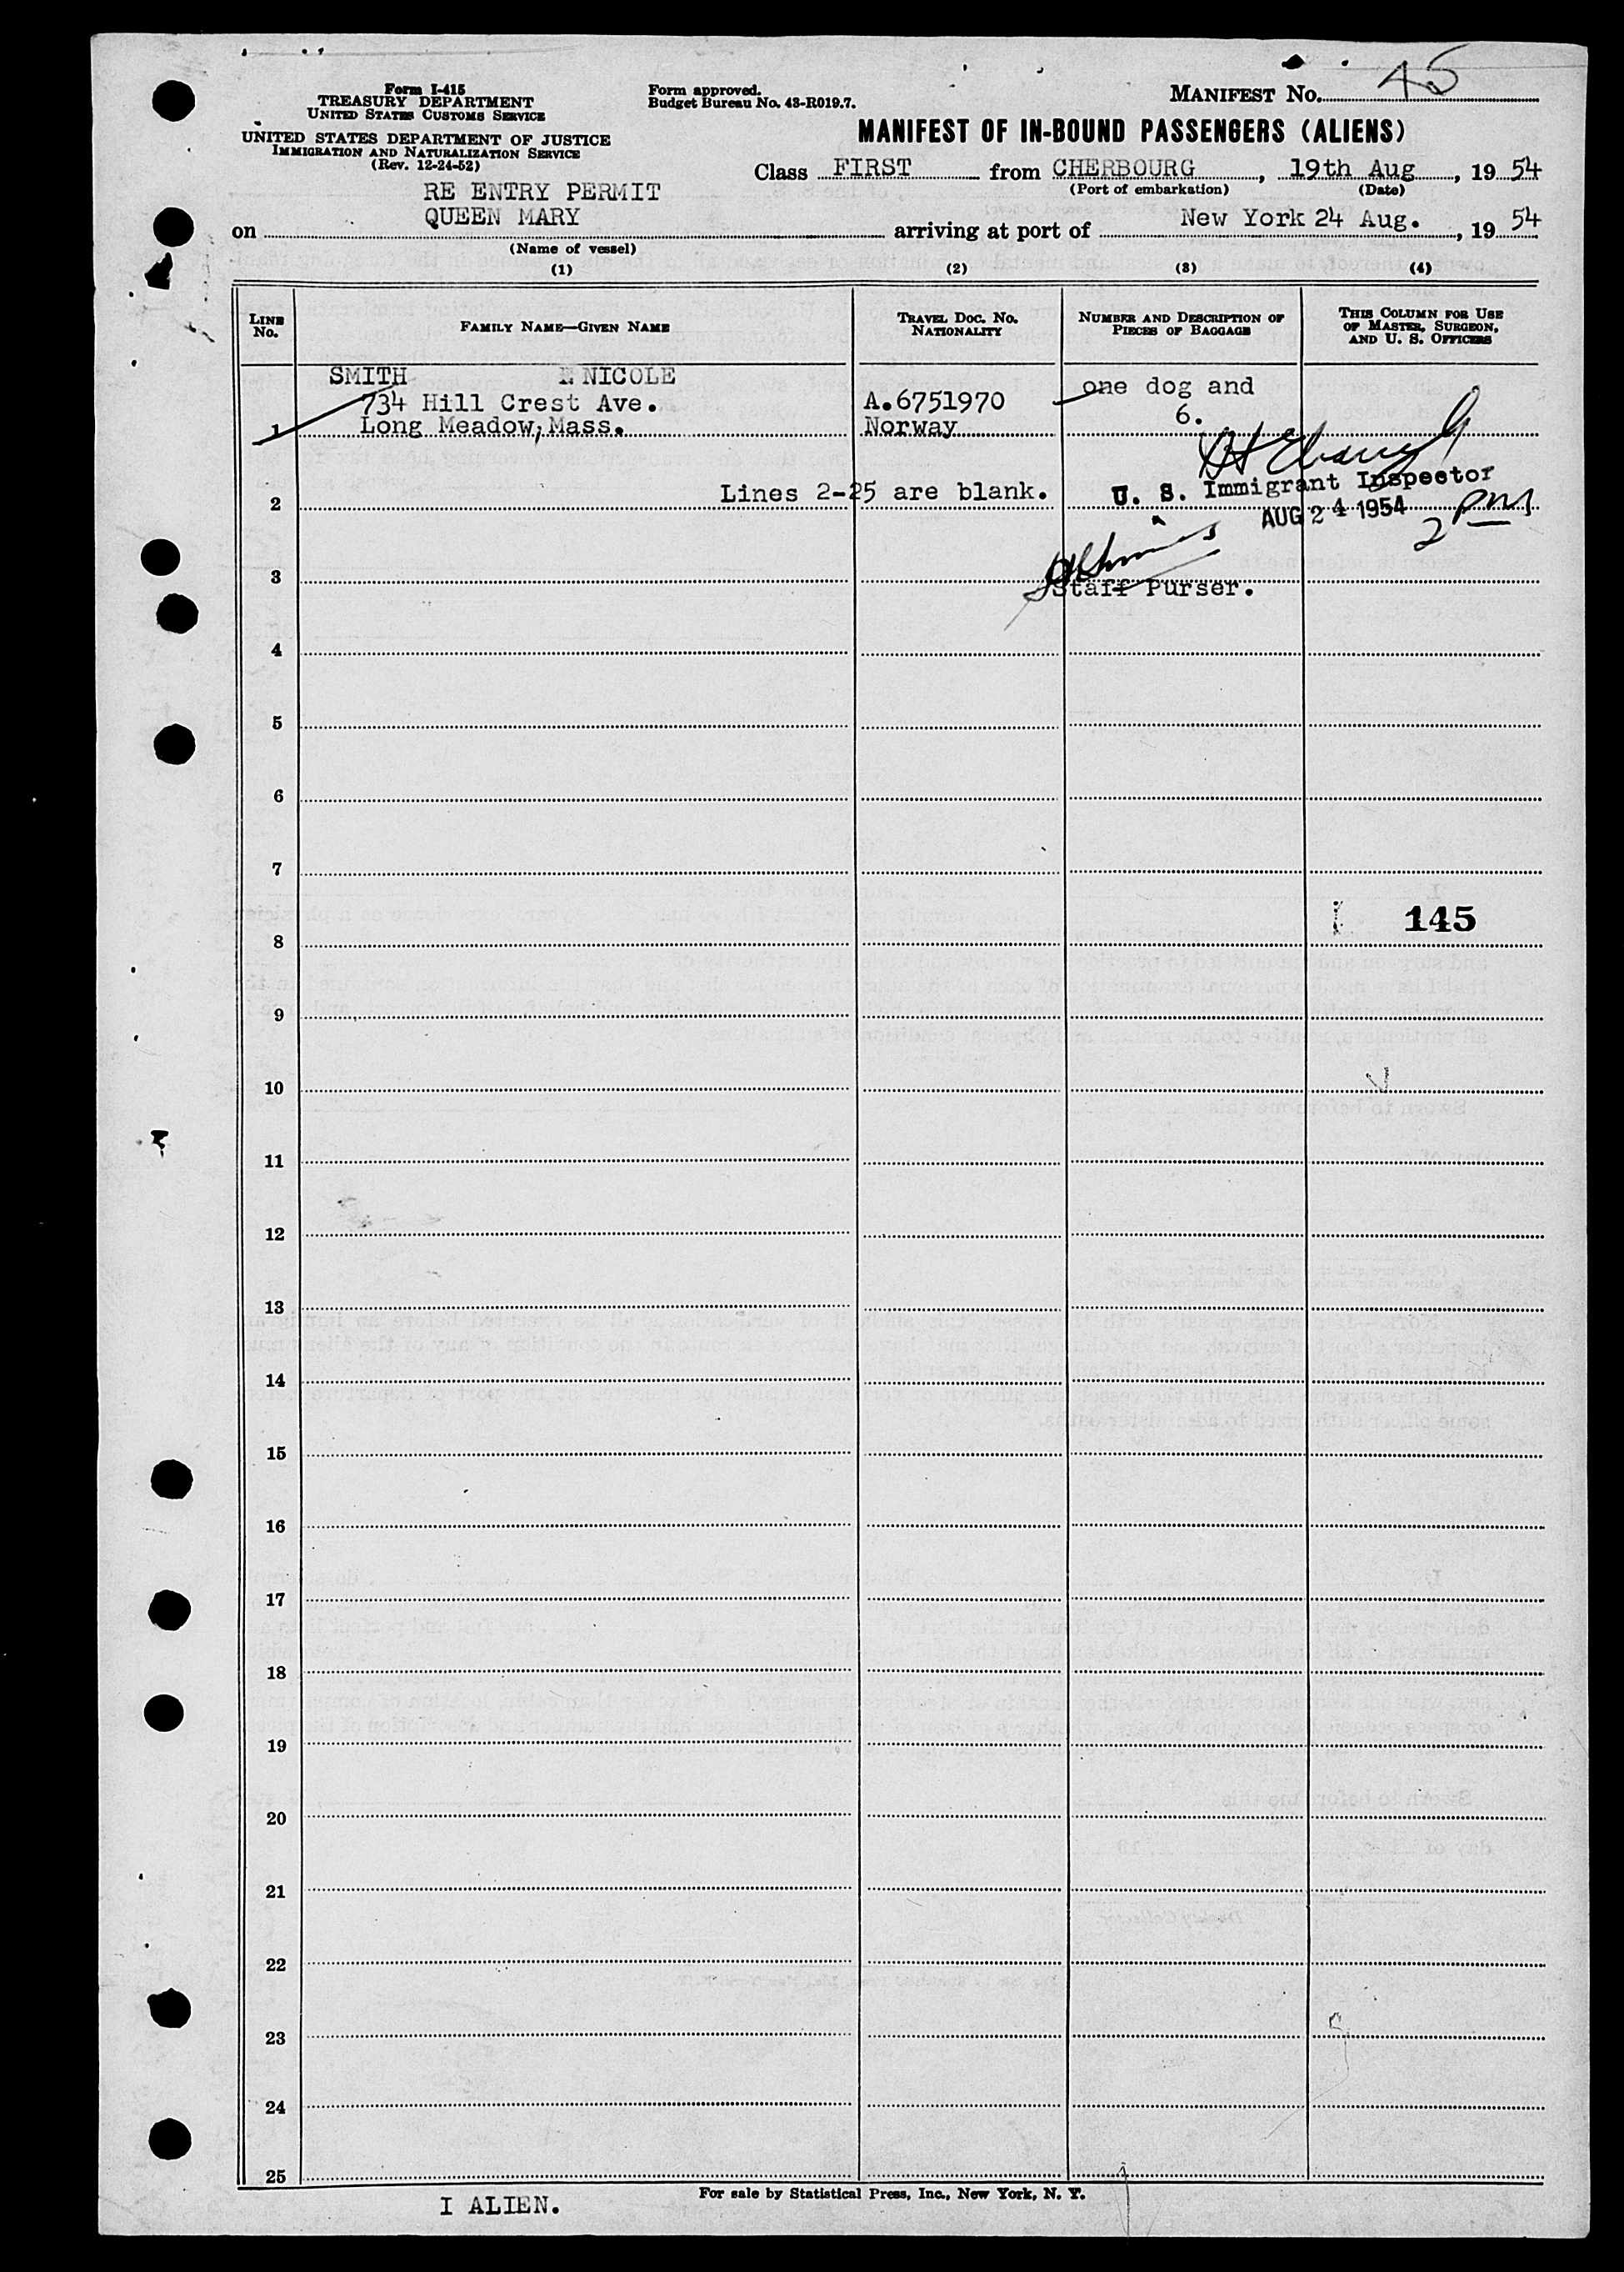 Form I-415
TREASURY DEPARTMENT
UNITED STATES CUSTOMS SERVICE
UNITED STATES DEPARTMENT OF JUSTICE
IMMIGRATION AND NATURALIZATION SERVICE
(Rev. 12-24-52)
Form approved.
Budget Bureau No. 43-R019.7.
MANIFEST NO. 45
MANIFEST OF IN-BOUND PASSENGERS (ALIENS)
Class FIRST from CHERBOURG, 19th Aug, 1954
(Port of embarkation) (Date)
RE ENTRY PERMIT
on QUEEN MARY arriving at port of New York 24 Aug., 1954
(Name of vessel)
(1) (2) (3) (4)
LINE No. FAMILY NAME—GIVEN NAME TRAVEL DOC. NO. NATIONALITY NUMBER AND DESCRIPTION OF PIECES OF BAGGAGE THIS COLUMN FOR USE OF MASTER, SURGEON, AND U. S. OFFICERS
SMITH NICOLE one dog and
734 Hill Crest Ave. A.6751970 6.
1 Long Meadow, Mass. Norway
U. S. Immigrant Inspector
2 Lines 2-25 are blank. AUG 24 1954 2 PM
3 Staff Purser.
4
5
6
7
145
8
9
10
11
12
13
14
15
16
17
18
19
20
21
22
23
24
25
I ALIEN.
For sale by Statistical Press, Inc., New York, N. Y.